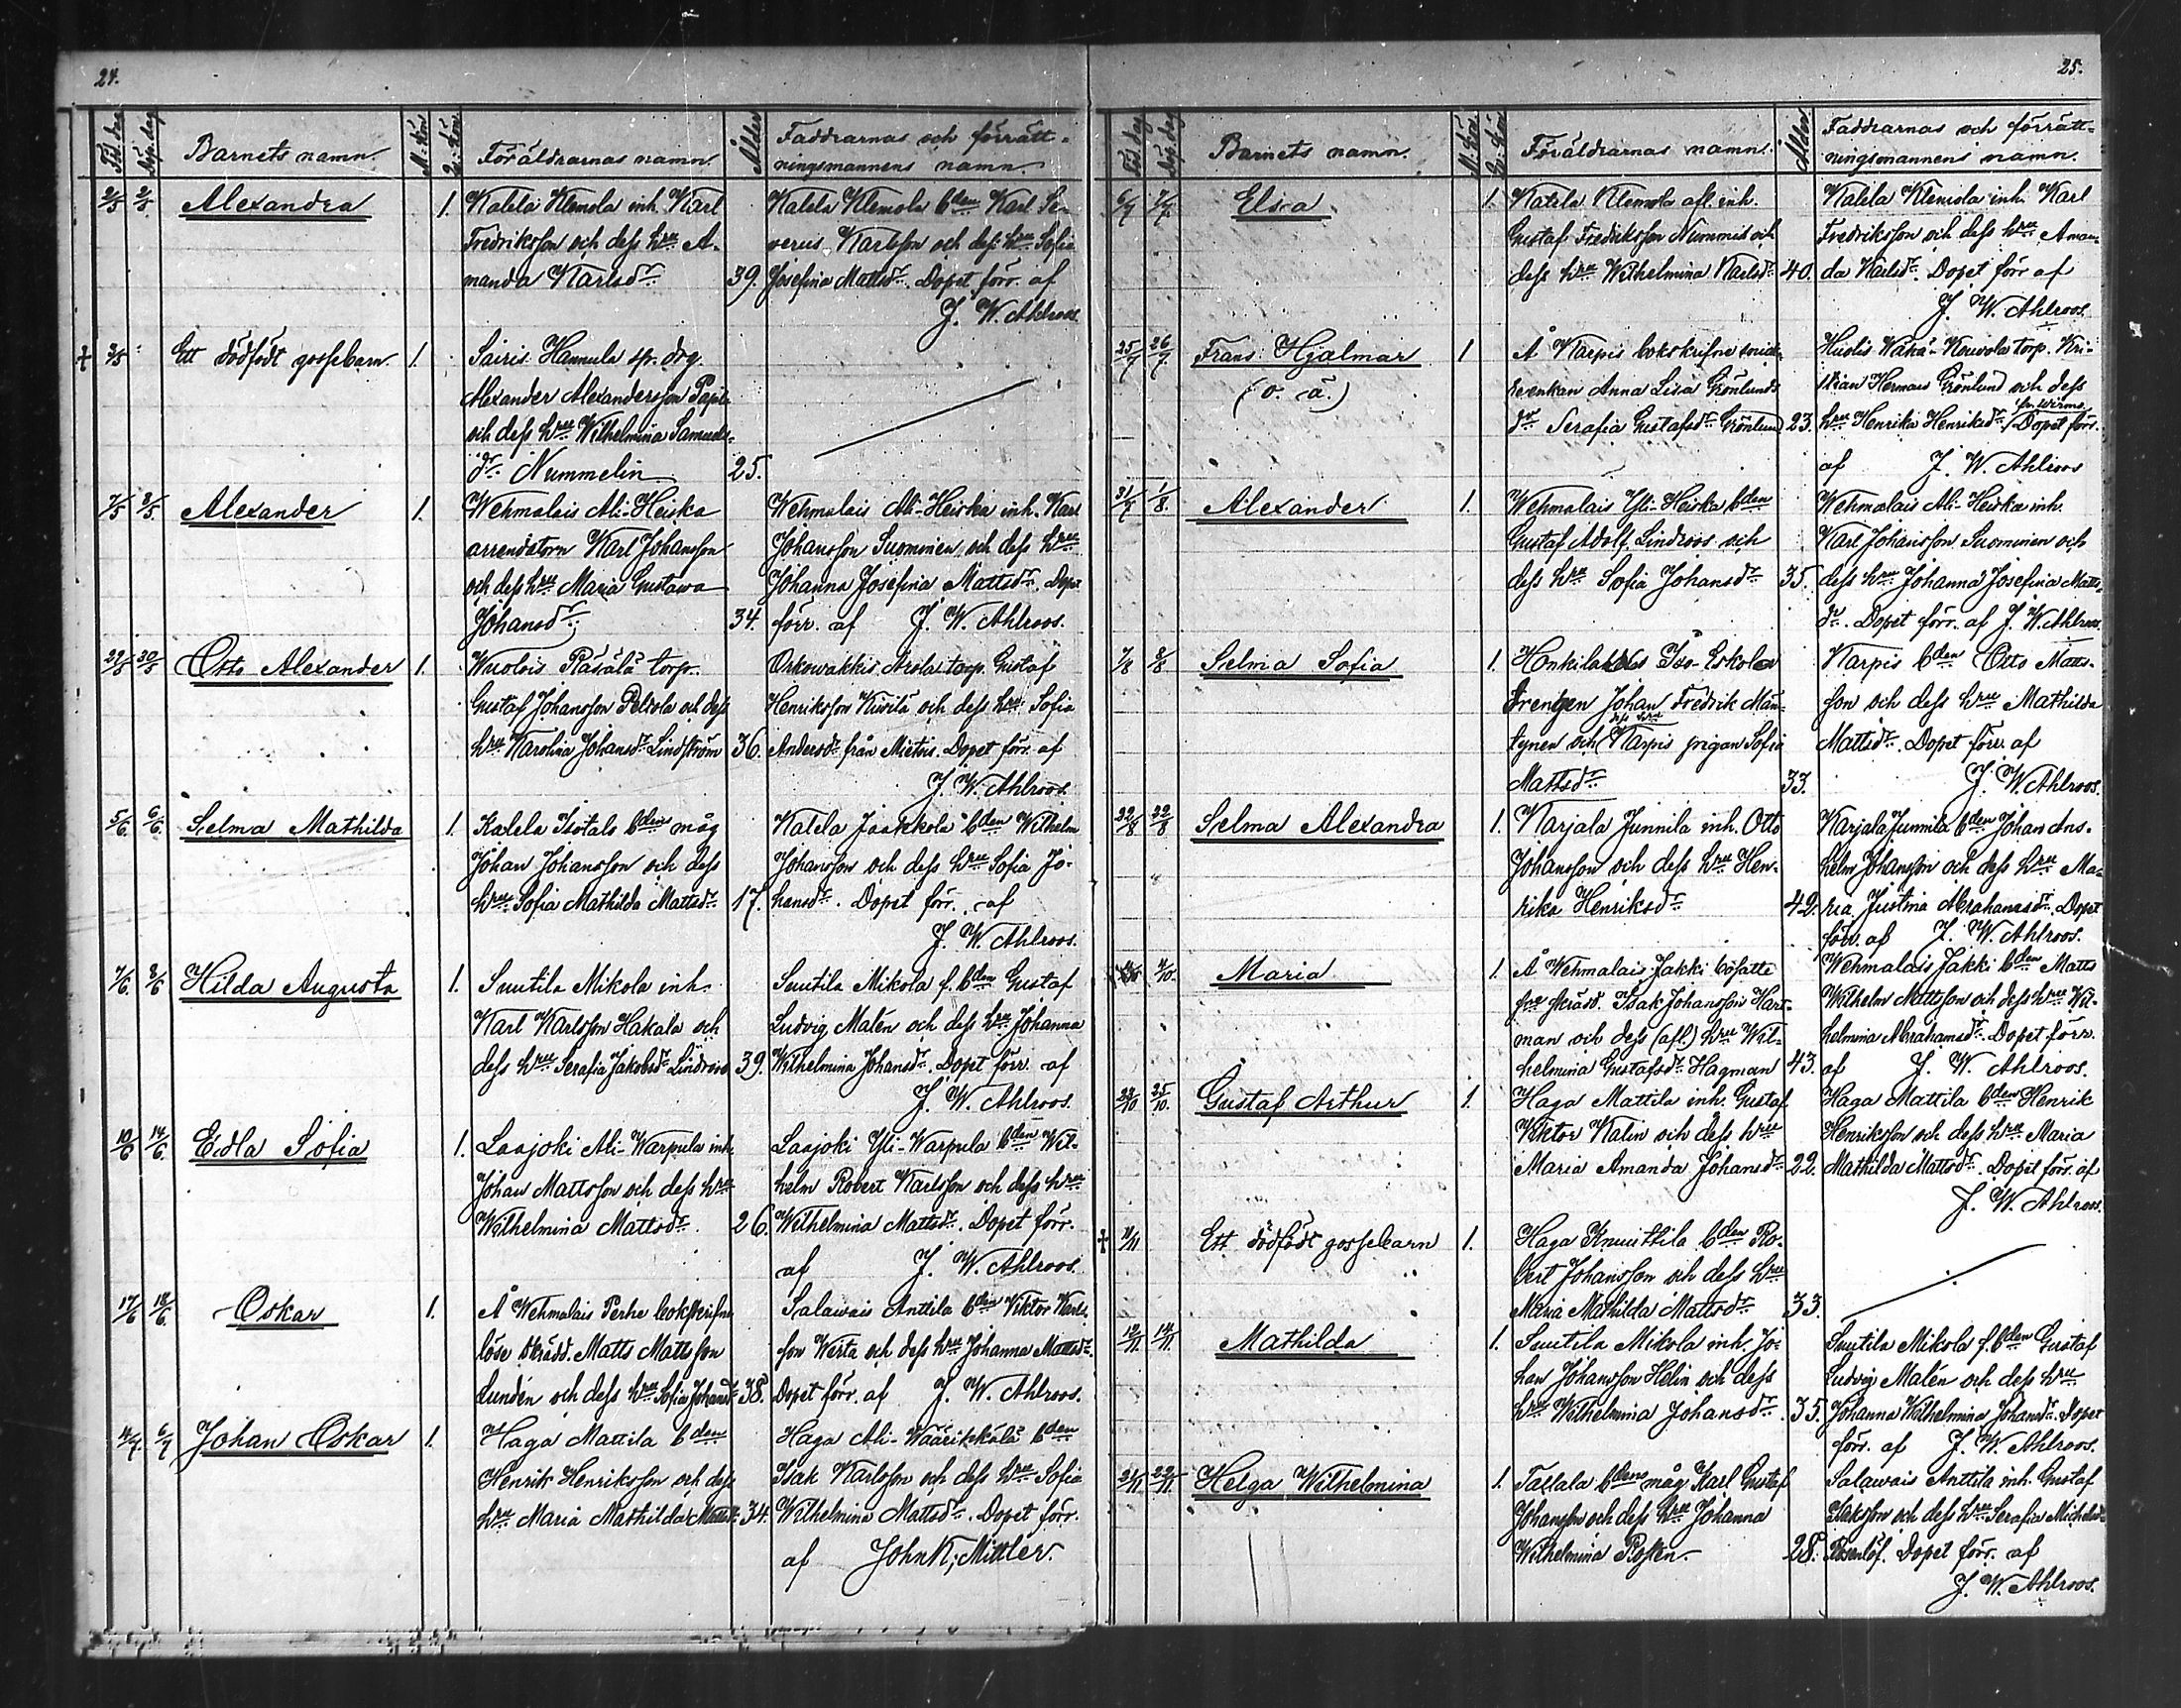 24.
Föd. dag
Döp. dag
Barnets namn.
M. Kön
Q. Kön
Föräldrarnas namn.
Ålder
Faddrarnas och förrätt-
ningsmannens namn.
2/5 2/5 Alexandra 1.
Kalela Klemola inh. Karl
Fredriksson och dess hru A-
manda Karlsdr. 39.
Kalela Klemola bden Karl Se-
verus Karlsson och dess hru Sofia
Josefina Mattsdr. Dopet förr. af
J. W. Ahlroos.
+ 3/5 Ett dödfödt gossebarn. 1.
Sairis Hannula sp. drg
Alexander Alexandersson
och dess hru Wilhelmina Samuels-
dr. Nummelin 25.
7/5 8/5 Alexander 1.
Wehmalais Ali-Heiska
arrendatorn Karl Johansson
och dess hru Maria Gustawa
Johansdr. 34.
Wehmalais Ali-Heiska inh. Karl
Johansson Suominen och dess hru
Johanna Josefina Mattsdr. Dopet
förr. af J. W. Ahlroos.
29/5 30/5 Otto Alexander 1.
Wuolois Päsälä torp.
Gustaf Johansson Peltola och dess
hru Karolina Johansdr. Lindström 36.
Orkowakkis torp. Gustaf
Henriksson och dess hru Sofia
Andersdr. från Mietois. Dopet förr. af
J. W. Ahlroos.
5/6. 6/6. Selma Mathilda 1.
Kalela Isotalo bden måg
Johan Johansson och dess
hru Sofia Mathilda Mattsdr. 17.
Kalela Jaakkola bden Wilhelm
Johansson och dess hru Sofia Jo-
hansdr. Dopet förr. af
J. W. Ahlroos.
7/6. 8/6 Hilda Augusta 1.
Suutila Mikola inh.
Karl Karlsson Hakala och
dess hru Serafia Jakobsdr. Lindroos 39.
Suutila Mikola f. bden Gustaf
Ludvig Malén och dess hru Johanna
Wilhelmina Johansdr. Dopet förr. af
J. W. Ahlroos.
10/6 14/6. Edla Sofia 1.
Laajoki Ali-Warpula inh.
Johan Mattsson och dess hru
Wilhelmina Mattsdr. 26.
Laajoki Yli-Warpula bden Wil-
helm Robert Karlsson och dess hru
Wilhelmina Mattsdr. Dopet förr.
af J. W. Ahlroos.
17/6 18/6. Oskar 1.
Å Wehmalais Perhe bokskrifne
löse skrädd. Matts Mattsson
Lundén och dess hru Sofia Johansdr. 38.
Salawais Anttila bden Viktor Karls-
son Werta och dess hru Johanna Mattsdr.
Dopet förr. af J. W. Ahlroos.
4/7. 6/7 Johan Oskar 1.
Haga Mattila bden
Henrik Henriksson och dess
hru Maria Mathilda Mattsdr. 34.
Haga Ali-Wäärikkälä bden
Isak Karlsson och dess hru Sofia
Wilhelmina Mattsdr. Dopet förr.
af John K. Mittler.
25.
Föd. dag
Döp. dag
Barnets namn.
M. Kön.
Q. Kön
Föräldrarnas namn.
Ålder
Faddrarnas och förrätt-
ningsmannens namn.
6/7 7/7. Elsa 1.
Kalela Klemola afl. inh.
Gustaf Fredriksson Nummis och
dess hru Wilhelmina Karlsdr. 40.
Kalela Klemola inh. Karl
Fredriksson och dess hru Aman-
da Karlsdr. Dopet förr. af
J. W. Ahlroos.
25/7 26/7. Frans Hjalmar 1
(o. ä.)
Å Karpis bokskrifne smeds-
enkan Anna Lisa Grönlunds
dr Serafia Gustafsdr. Grönlund 23.
Huolis Wähä-Kouvola torp. Kri-
stian Herman Grönlund och dess
hru Henrika Henriksdr. fr. Wirmo. Dopet förr.
af J. W. Ahlroos
31/7 1/8. Alexander 1.
Wehmalais Yli-Heiska bden
Gustaf Adolf Lindroos och
dess hru Sofia Johansdr. 35.
Wehmalais Ali-Heiska inh.
Karl Johansson Suominen och
dess hru Johanna Josefina Matts-
dr. Dopet förr. af J. W. Ahlroos.
7/8 8/8 Selma Sofia 1.
Honkilaks Iso-Eskola
drengen Johan Fredrik Män-
tynen och dess hru Karpis pigan Sofia
Mattsdr. 33.
Karpis bden Otto Matts-
son och dess hru Mathilda
Mattsdr. Dopet förr. af
J. W. Ahlroos.
22/8 22/8 Selma Alexandra 1.
Karjala Junnila inh. Otto
Johansson och dess hru Hen-
rika Henriksdr. 42.
Karjala Junnila bden Johan Ans-
helm Johansson och dess hru Ma-
ria Justina Abrahamsdr. Dopet
förr. af J. W. Ahlroos.
4/10. Maria 1.
Å Wehmalais Jakki bosatte
fre skrädd. Isak Johansson Hart-
man och dess (afl.) hru Wil-
helmina Gustafsdr. Hagman 43.
Wehmalais Jakki bden Matts
Wilhelm Mattsson och dess hru Wil-
helmina Abrahamsdr. Dopet förr.
af J. W. Ahlroos.
22/10 25/10. Gustaf Arthur 1.
Haga Mattila inh. Gustaf
Viktor Kalin och dess hru
Maria Amanda Johansdr. 22.
Haga Mattila bden Henrik
Henriksson och dess hru Maria
Mathilda Mattsdr. Dopet förr. af
J. W. Ahlroos.
+ 11/11 Ett dödfödt gossebarn 1.
Haga Knuuttila bden Ro-
bert Johansson och dess hru
Maria Mathilda Mattsdr. 33.
12/11 14/11. Mathilda 1.
Suutila Mikola inh. Jo-
han Johansson Helin och dess
hru Wilhelmina Johansdr. 35.
Suutila Mikola f. bden Gustaf
Ludvig Malén och dess hru
Johanna Wilhelmina Johansdr. Dopet
förr. af J. W. Ahlroos.
21/11 22/11. Helga Wilhelmina 1.
Tattala bdens måg Karl Gustaf
Johansson och dess hru Johanna
Wilhelmina Rostén. 28.
Salawais Anttila inh. Gustaf
Isaksson och dess hru Serafia Michelsdr.
Rosenlöf. Dopet förr. af
J. W. Ahlroos.